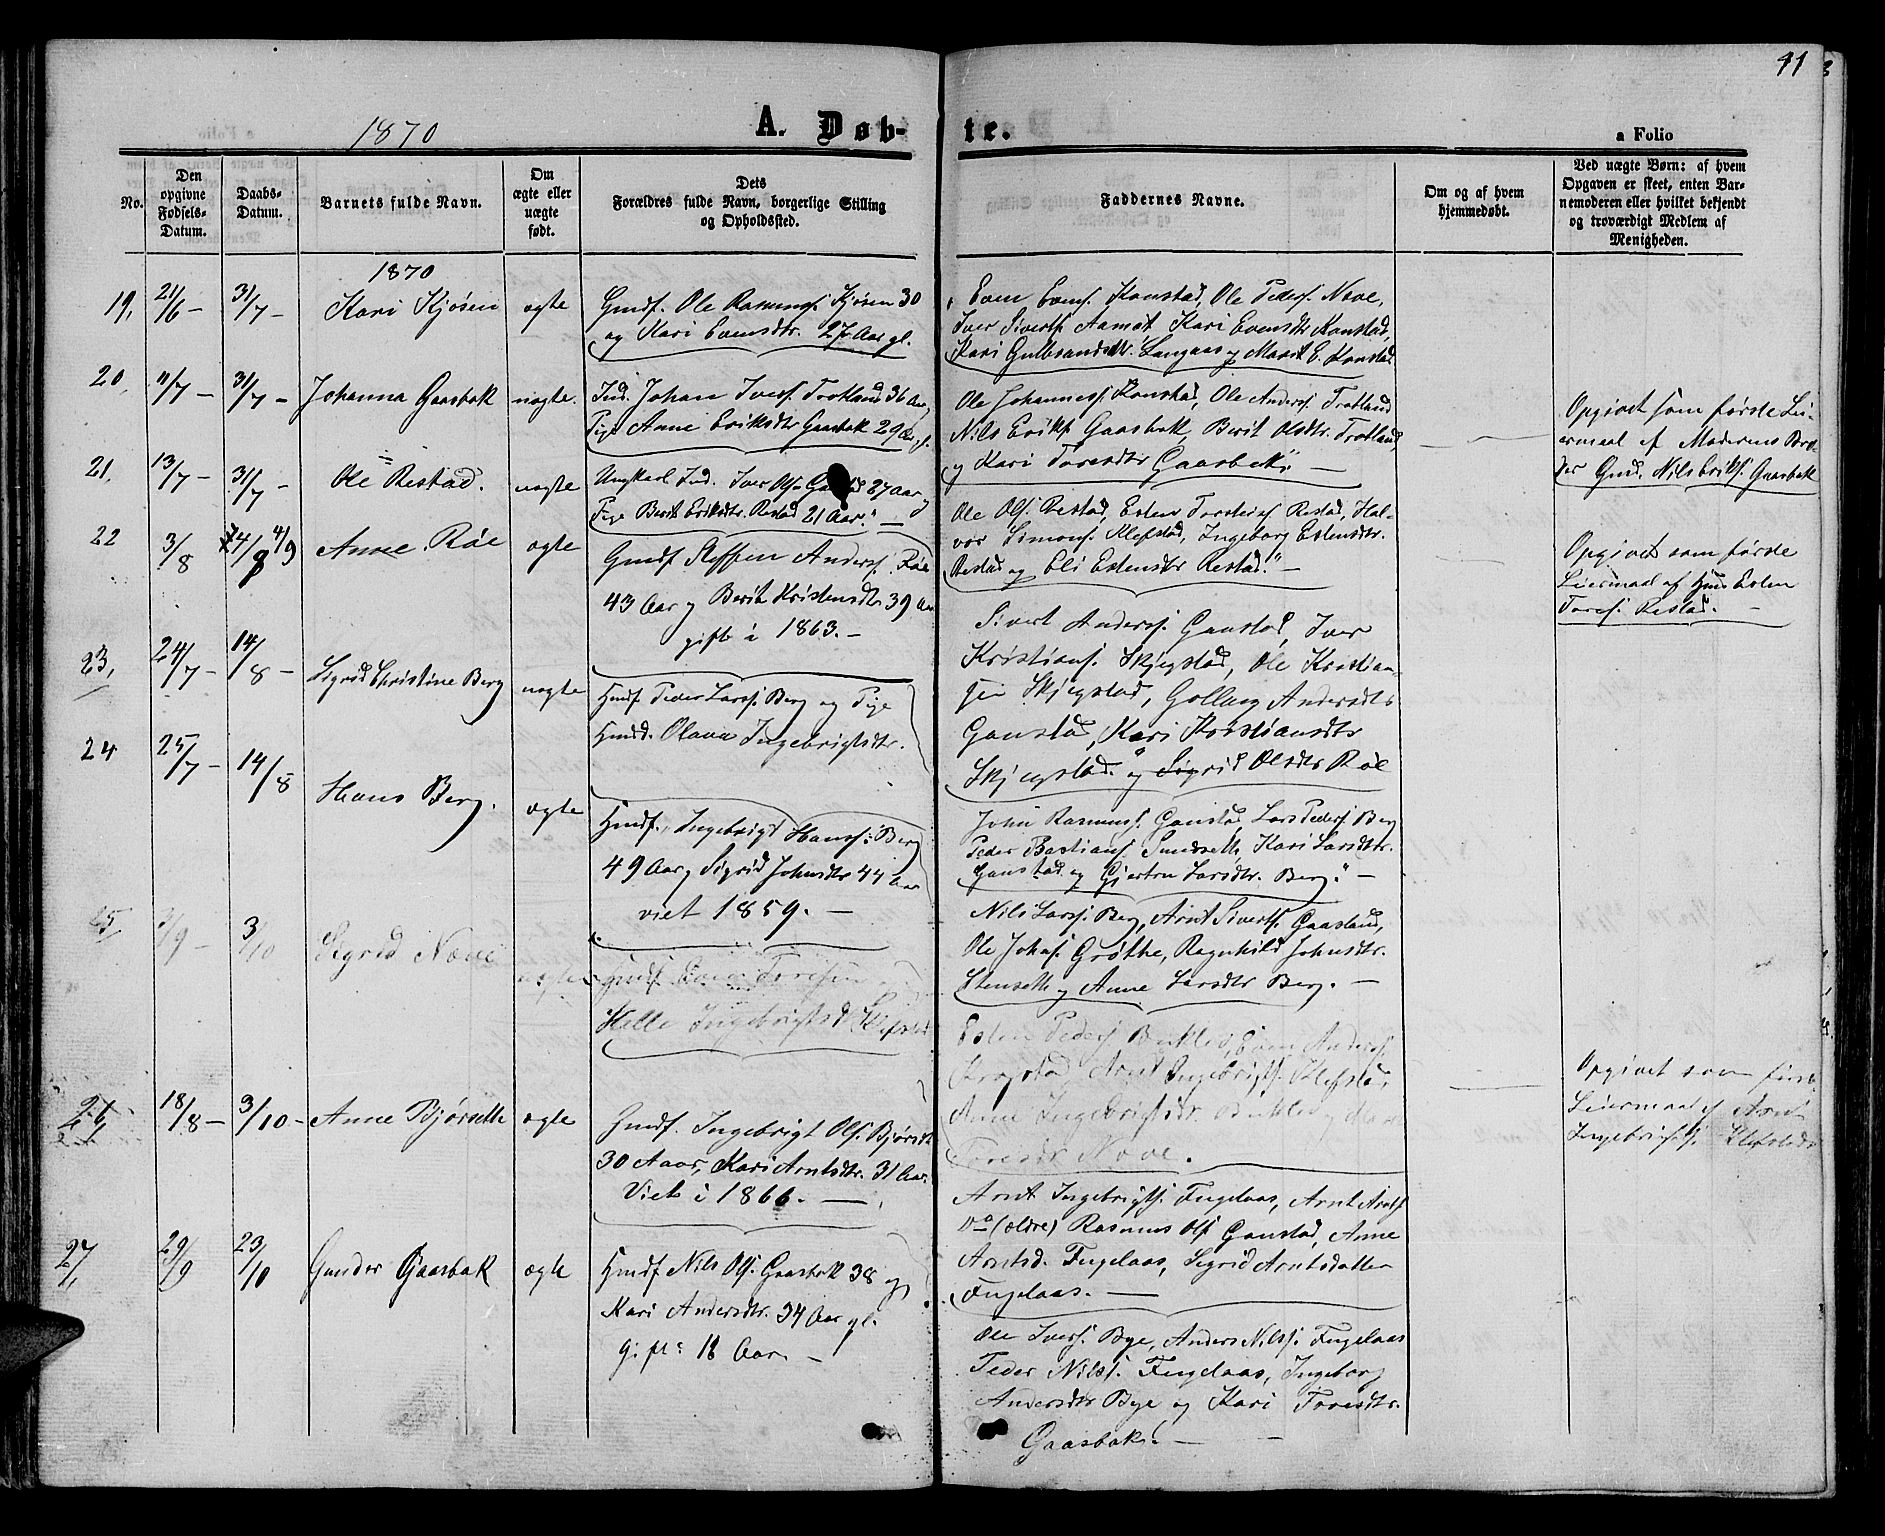 41
1870
A. Døb-
te.
a Folio
No.
Den
opgivne
Fødsels-
Datum.
Daabs-
Datum.
Barnets fulde Navn.
Om
ægte eller
uægte
født.
Dets
Forældres fulde Navn, borgerlige Stilling
og Opholdssted.
Faddernes Navne.
Om og af hvem
hjemmedøbt.
Ved uægte Børn: af hvem
Opgaven er skeet, enten Bar-
nemoderen eller hvilket bekjendt
og troværdigt Medlem af
Menigheden.
1870
19, 21/6 — 31/7 — Kari Kjøsen ægte
Gmdf. Ole Rasmuss. Kjøsen 30
og Kari Evensdtr. 27 Aar gl.
Even Evens. Konstad, Ole Peders. Nove,
Iver Siverts. Aamot Kari Evensdtr Konstad,
Kari Gulbrandsdtr. Langaas og Marit E. Konstad
20, 11/7 — 31/7 — Johanna Gaasbak uægte.
Ind. Johan Ivers. Trotland 36 Aar,
Pige Anne Eriksdtr Gaasbak 29 Aar gl.
Ole Johanness. Konstad, Ole Anders. Trotland
Nils Eriks. Gaasbak, Berit Olsdtr. Trotland,
og Kari Toresdtr Gaasbak. —
Opgivet som første Lei-
ermaal af Moderens Bro-
der Gmd. Nils Eriks. Gaasbak
21, 13/7 — 31/7 — Ole Restad. uægte
Ungkarl Ind. Iver Ols. 27 Aar og
Pige Berit Eriksdtr. Restad 21 Aar. —
Ole Ols. Restad, Esten Torstens. Restad, Hal-
vor Simons. Klefstad, Ingeborg Estensdtr.
Restad og Eli Estensdtr Restad. —
Opgivet som første
Leiermaal af Hmd Esten
Tores. Restad. —
22 3/8 4/9 Anne Røe ægte
Gmdf Steffen Anders. Røe
43 Aar og Berit Kristensdtr. 39 Aar
gifte i 1863. —
Sivert Anders. Ganstad, Iver
Kristians. Skjegstad, Ole Kristian-
sen Skjegstad, Gollaug Andersdtr
Ganstad, Kari Kristiansdtr
Skjegstad. og Sigrid Olsdtr Røe
23, 24/7 — 14/8 — Sigrid Christine Berg uægte
Hmdf. Peder Larss. Berg og Pige
Hmdd. Olava Ingebrigtsdtr.
John Rasmuss. Ganstad, Lars Peders. Berg
Peder Bastians. Sundseth, Kari Larsdtr.
Ganstad og Gjertru Larsdtr. Berg. —
24 25/7 — 14/8 Hans Berg. ægte
Hmdf. Ingebrigt Hanss. Berg
49 Aar og Sigrid Johnsdtr 44 Aar
viet 1859. —
Nils Larss. Berg, Arnt Siverts. Gaasland,
Ole Johns. Grøthe, Ragnhild Johnsdtr.
Stenseth og Anne Larsdtr Berg. —
25, 3/9 — 3/10 Sigrid Nove uægte
Gmdf Even Toresen
Helle Ingebrigtsd Klefstad
Esten Peders Bæklid, Even Anders.
Anne Ingebrigtsdtr.
Toresdtr Nove.
Opgivet som første
Leiermaal af Arnt
Ingebrigts. Klefstad
26, 18/8 — 3/10 — Anne Bjørseth ægte
Gmdf. Ingebrigt Ols. Bjørseth
30 Aaar, Kari Arntsdtr. 31 Aar.
Viet i 1866. —
Arnt Ingebrigts. Fuglaas, Arnt Arnts
Do (ældre) Rasmus Ols Ganstad, Anne
Arntsd. Fuglaas, Sigrid Arntsdatter
Fuglaas. —
27, 29/9 23/10 Gunder Gaasbak ægte
Hmdf Nils Ols. Gaasbak 38 og
Kari Andersdtr. 34 Aar gl.
Gifte 18 Aar. —
Ole Ivers. Bye, Anders Nilss. Fuglaas
Peder Nilss. Fuglaas, Ingeborg
Andersdtr Bye og Kari Toresdtr.
Gaasbak. —